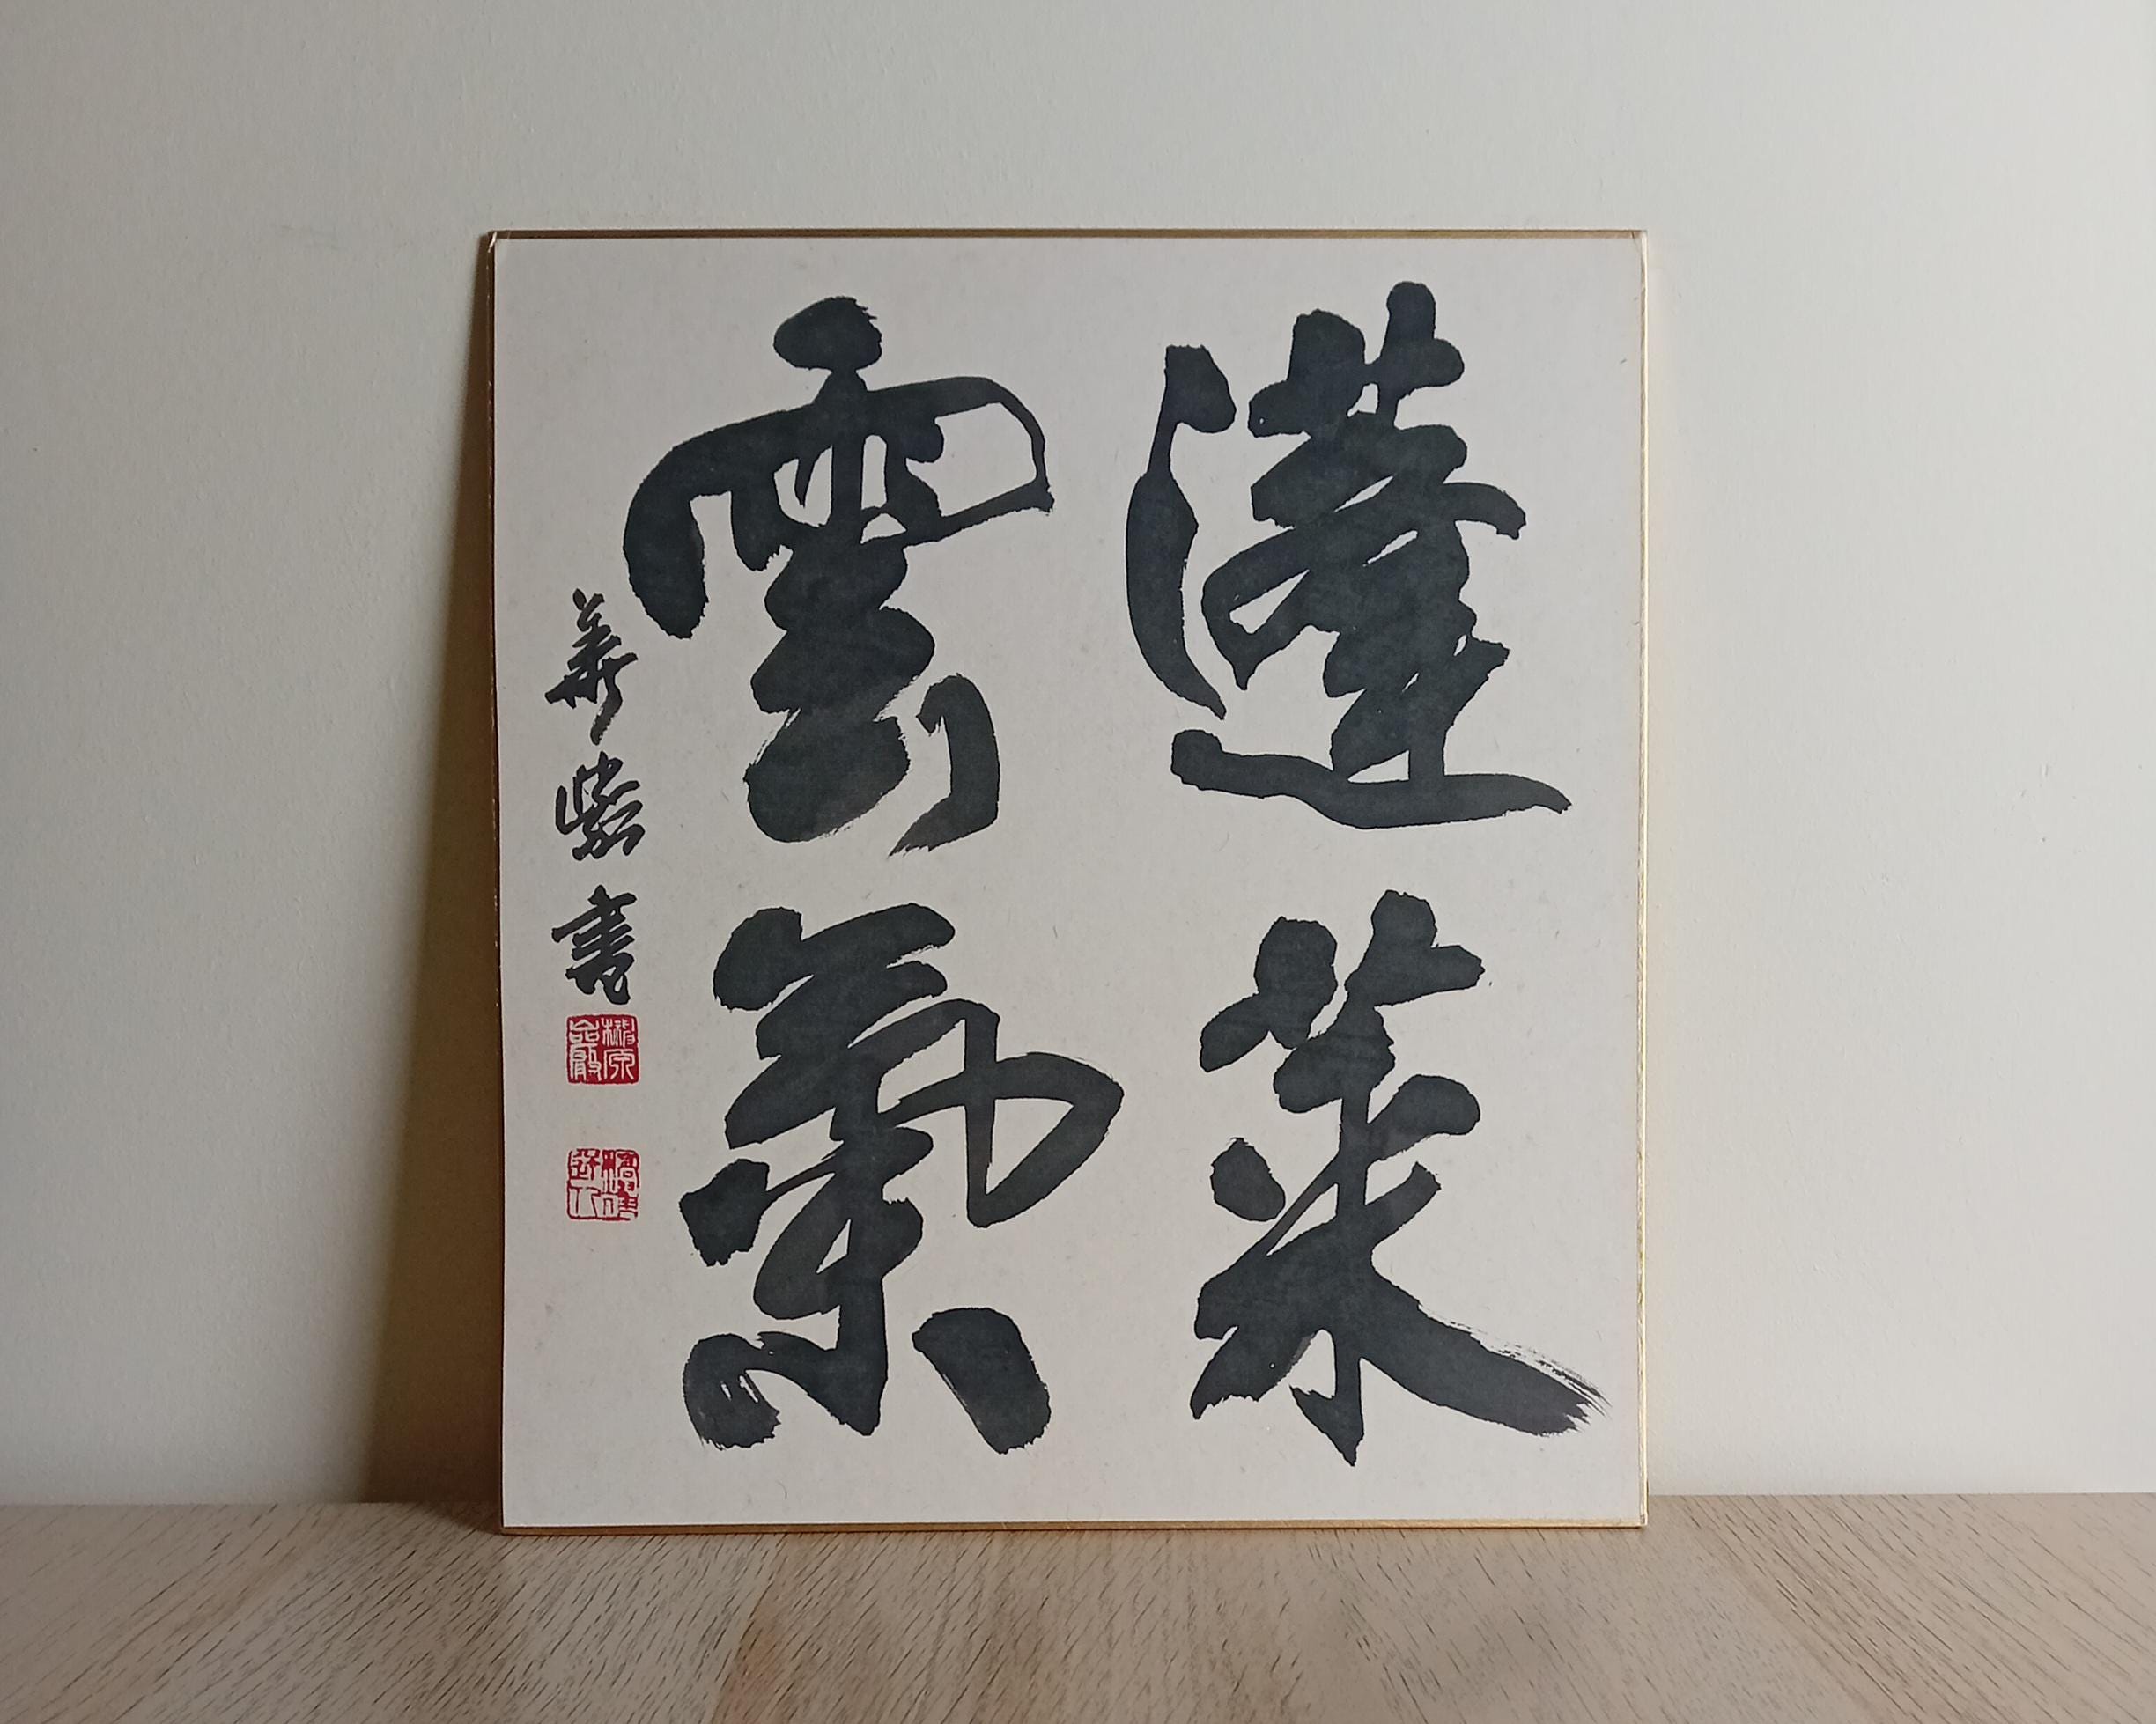 蓬萊
雲氣
華紫書